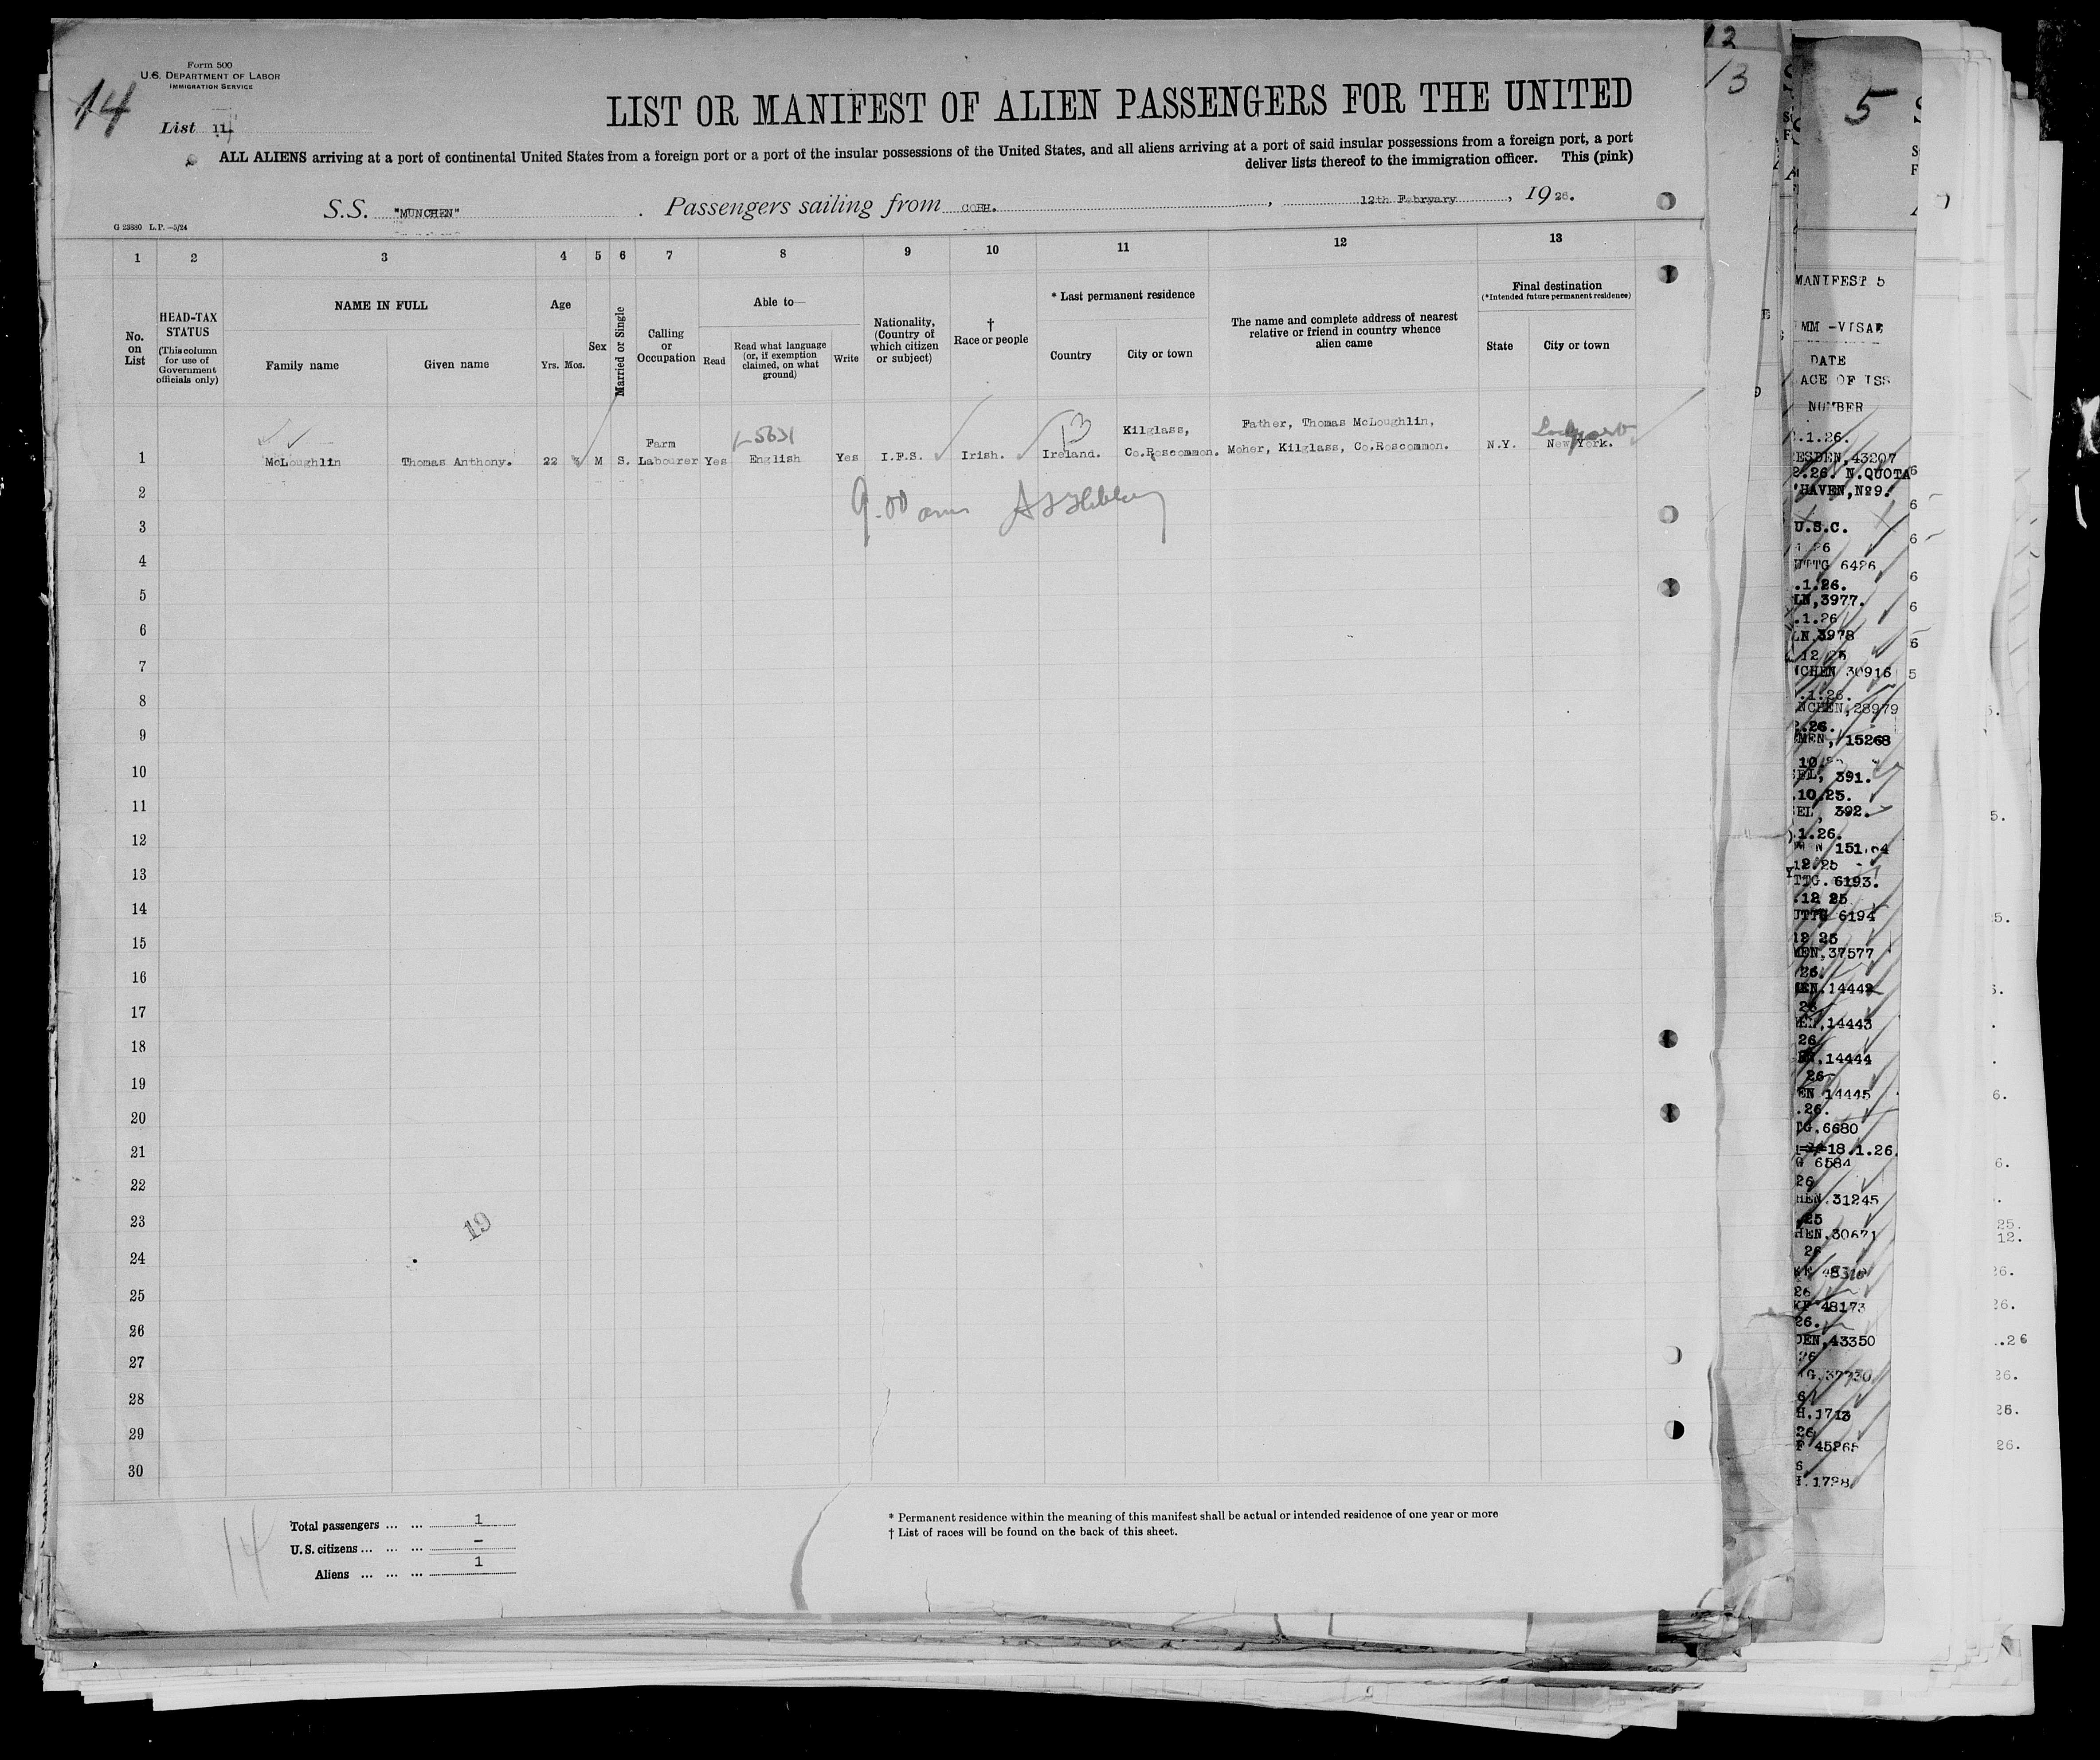 Form 500
U.S. DEPARTMENT OF LABOR
IMMIGRATION SERVICE
14
List 11
LIST OR MANIFEST OF ALIEN PASSENGERS FOR THE UNITED
ALL ALIENS arriving at a port of continental United States from a foreign port or a port of the insular possessions of the United States, and all aliens arriving at a port of said insular possessions from a foreign port, a port
deliver lists thereof to the immigration officer. This (pink)
S.S. "MUNCHEN" . Passengers sailing from COBH. , 12th Febryary , 1926.
G 23880 L.P.—5/24
1 2 3 4 5 6 7 8 9 10 11 12 13
No. on List
HEAD-TAX STATUS
(This column for use of Government officials only)
NAME IN FULL
Family name
Given name
Age
Yrs. Mos.
Sex
Married or Single
Calling or Occupation
Able to—
Read
Read what language (or, if exemption claimed, on what ground)
Write
Nationality, (Country of which citizen or subject)
† Race or people
* Last permanent residence
Country
City or town
The name and complete address of nearest relative or friend in country whence alien came
Final destination
(*Intended future permanent residence)
State
City or town
13
Farm
Kilglass,
Father, Thomas McLoughlin,
1 McLoughlin Thomas Anthony. 22 M S. Labourer Yes English Yes I.F.S. Irish. Ireland. Co.Roscommon. Moher, Kilglass, Co.Roscommon. N.Y. New York.
9.00 am
2
3
4
5
6
7
8
9
10
11
12
13
14
15
16
17
18
19
20
21
22
23
24
25
26
27
28
29
30
19
14
Total passengers ... ... 1
U.S. citizens ... ... ... -
Aliens ... ... ... 1
* Permanent residence within the meaning of this manifest shall be actual or intended residence of one year or more
† List of races will be found on the back of this sheet.
12
13
5
MANIFEST 5
DATE
NUMBER
.1.26.
43207
2.26. N.QUOTA
HAVEN, №9.
U.S.C.
6426
.1.26.
LN,3977.
.1.26
LN,3978
30916
.1.26.
28979
.26.
MEN, 15268
391.
.10.25.
EL, 392.
.1.26.
TTG.6193.
UTTG 6194
MEN,37577
14442
14443
14444
14445
.26.
TG.6680
18.1.26.
6584
31245
48173
43350